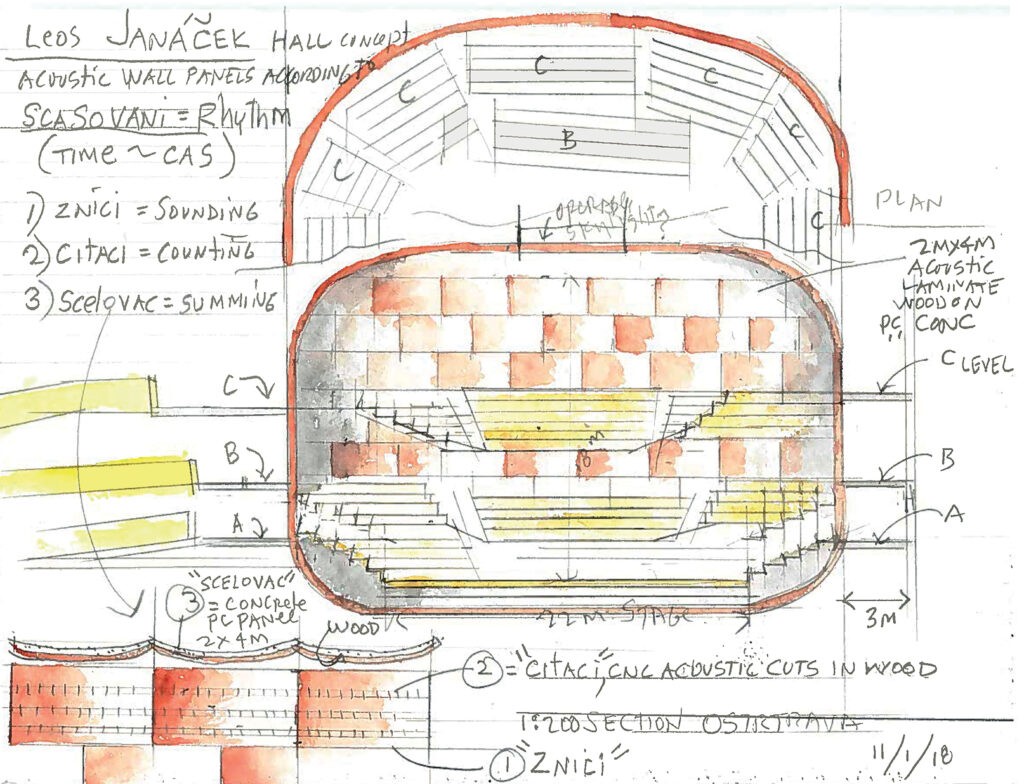 LEOS JANÁČEK HALL CONCEPT
ACOUSTIC WALL PANELS ACCORDING TO
SCASOVANI = Rhythm
(TIME ~ CAS)
1) ZNICI = SOUNDING
2) CITACI = COUNTING
3) SCELOVAC = SUMMING
C
C
C
C
C
B
C
C
PLAN
2MX4M
ACOUSTIC
LAMINATE
WOOD ON
PC CONC
C LEVEL
C
B
B
A
A
8 m
22 M STAGE
3M
"SCELOVAC"
3
= CONCRETE
PC PANEL
2 X 4 M
WOOD
2 = "CITACI", CNC ACOUSTIC CUTS IN WOOD
1:200 SECTION OSTRTRAVA
1 "ZNICI"
11/1/18